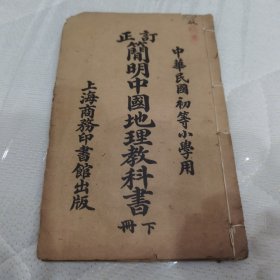 中華民國初等小學用
訂正
簡明中國地理教科書
下冊
上海商務印書館出版